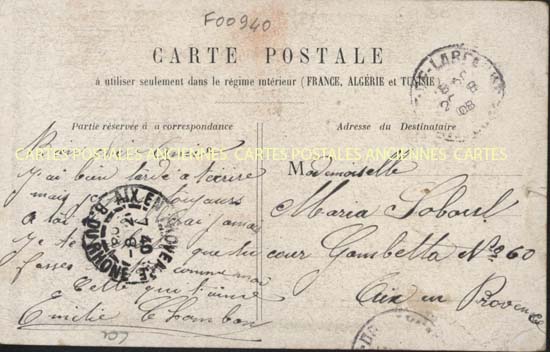 F00940
CARTE POSTALE
à utiliser seulement dans le régime intérieur (FRANCE, ALGÉRIE et TUNISIE)
Partie réservée à la correspondance
Adresse du Destinataire
CARTES POSTALES ANCIENNES CARTES POSTALES ANCIENNES CARTES
J'ai bien tardé a t'écrire
mais toujours
a toi jamais
Je te que tu
fasses comme moi
Celle qui t'aime
Emilie Chambon
Mademoiselle
Maria Soboul
cour Gambetta No 60
Aix en Provence
AIX-EN-PROVENCE
B. DU RHONE